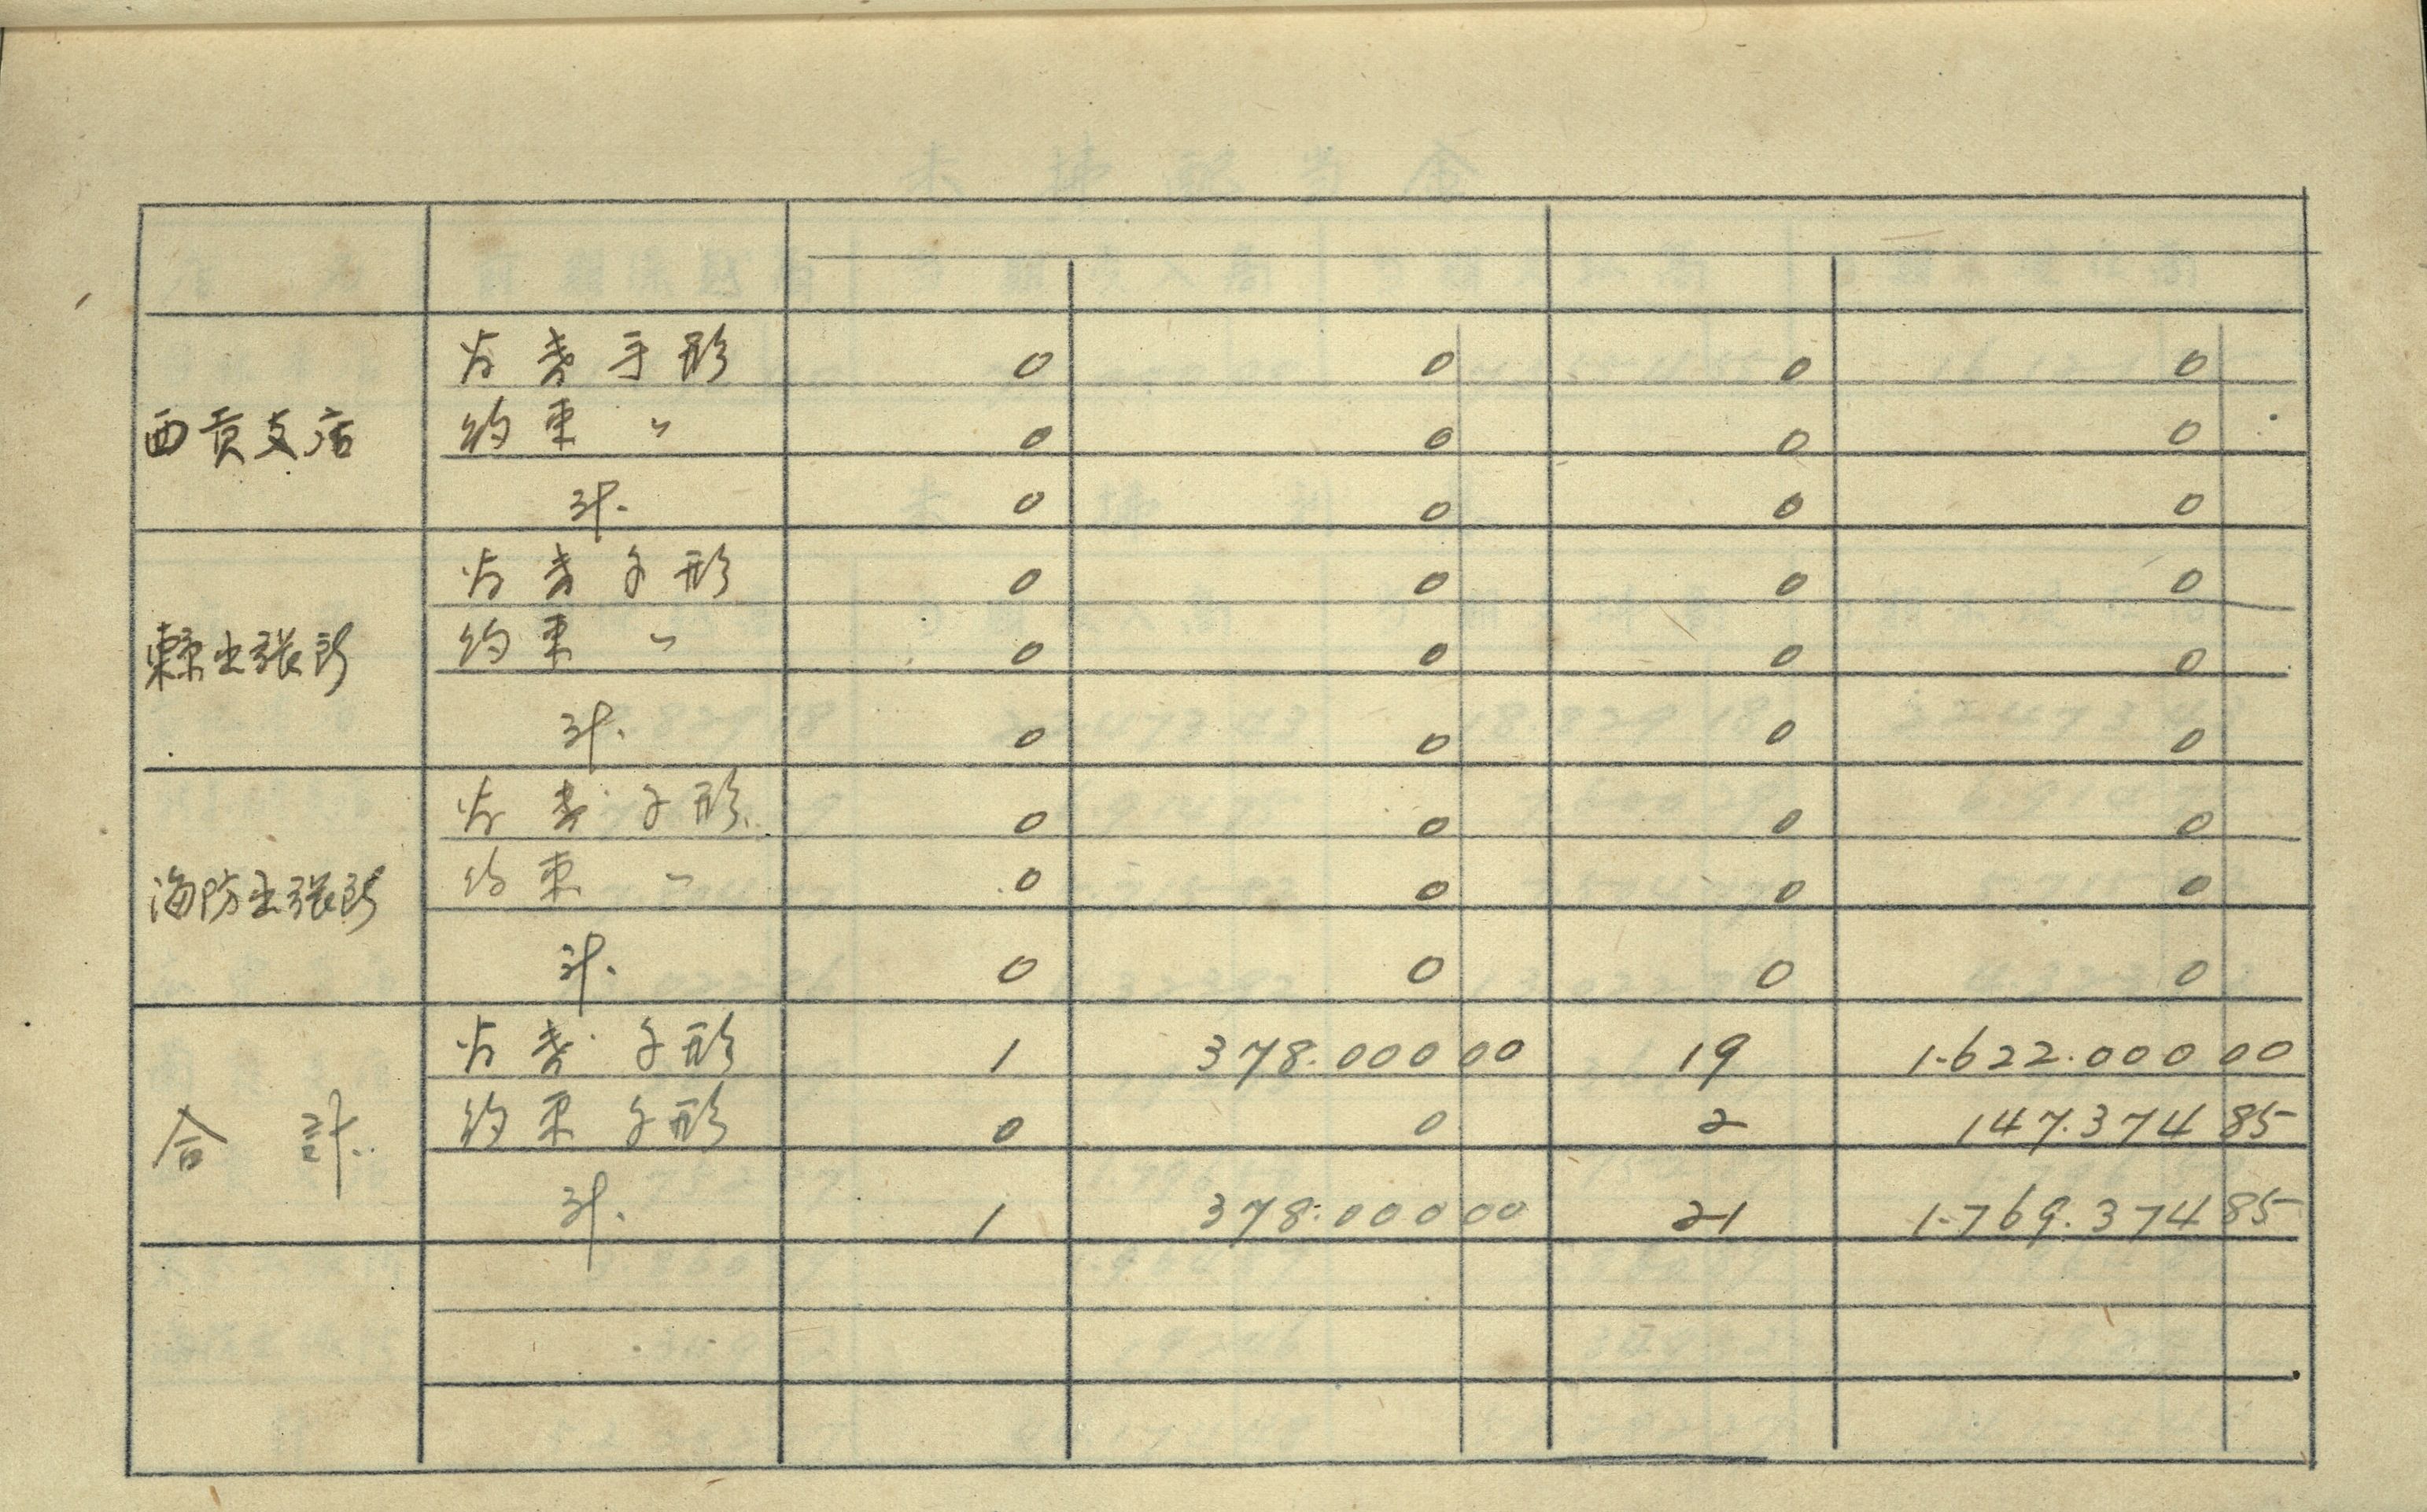 為替手形 0 0 0 0
西貢支店 約束 〃 0 0 0 0
計 0 0 0 0
為替手形 0 0 0 0
東京出張所 約束 〃 0 0 0 0
計 0 0 0 0
為替手形 0 0 0 0
海防出張所 約束 〃 0 0 0 0
計 0 0 0 0
為替手形 1 378.000 00 19 1.622.000 00
合計 約束手形 0 0 2 147.374 85
計 1 378.000 00 21 1.769.374 85